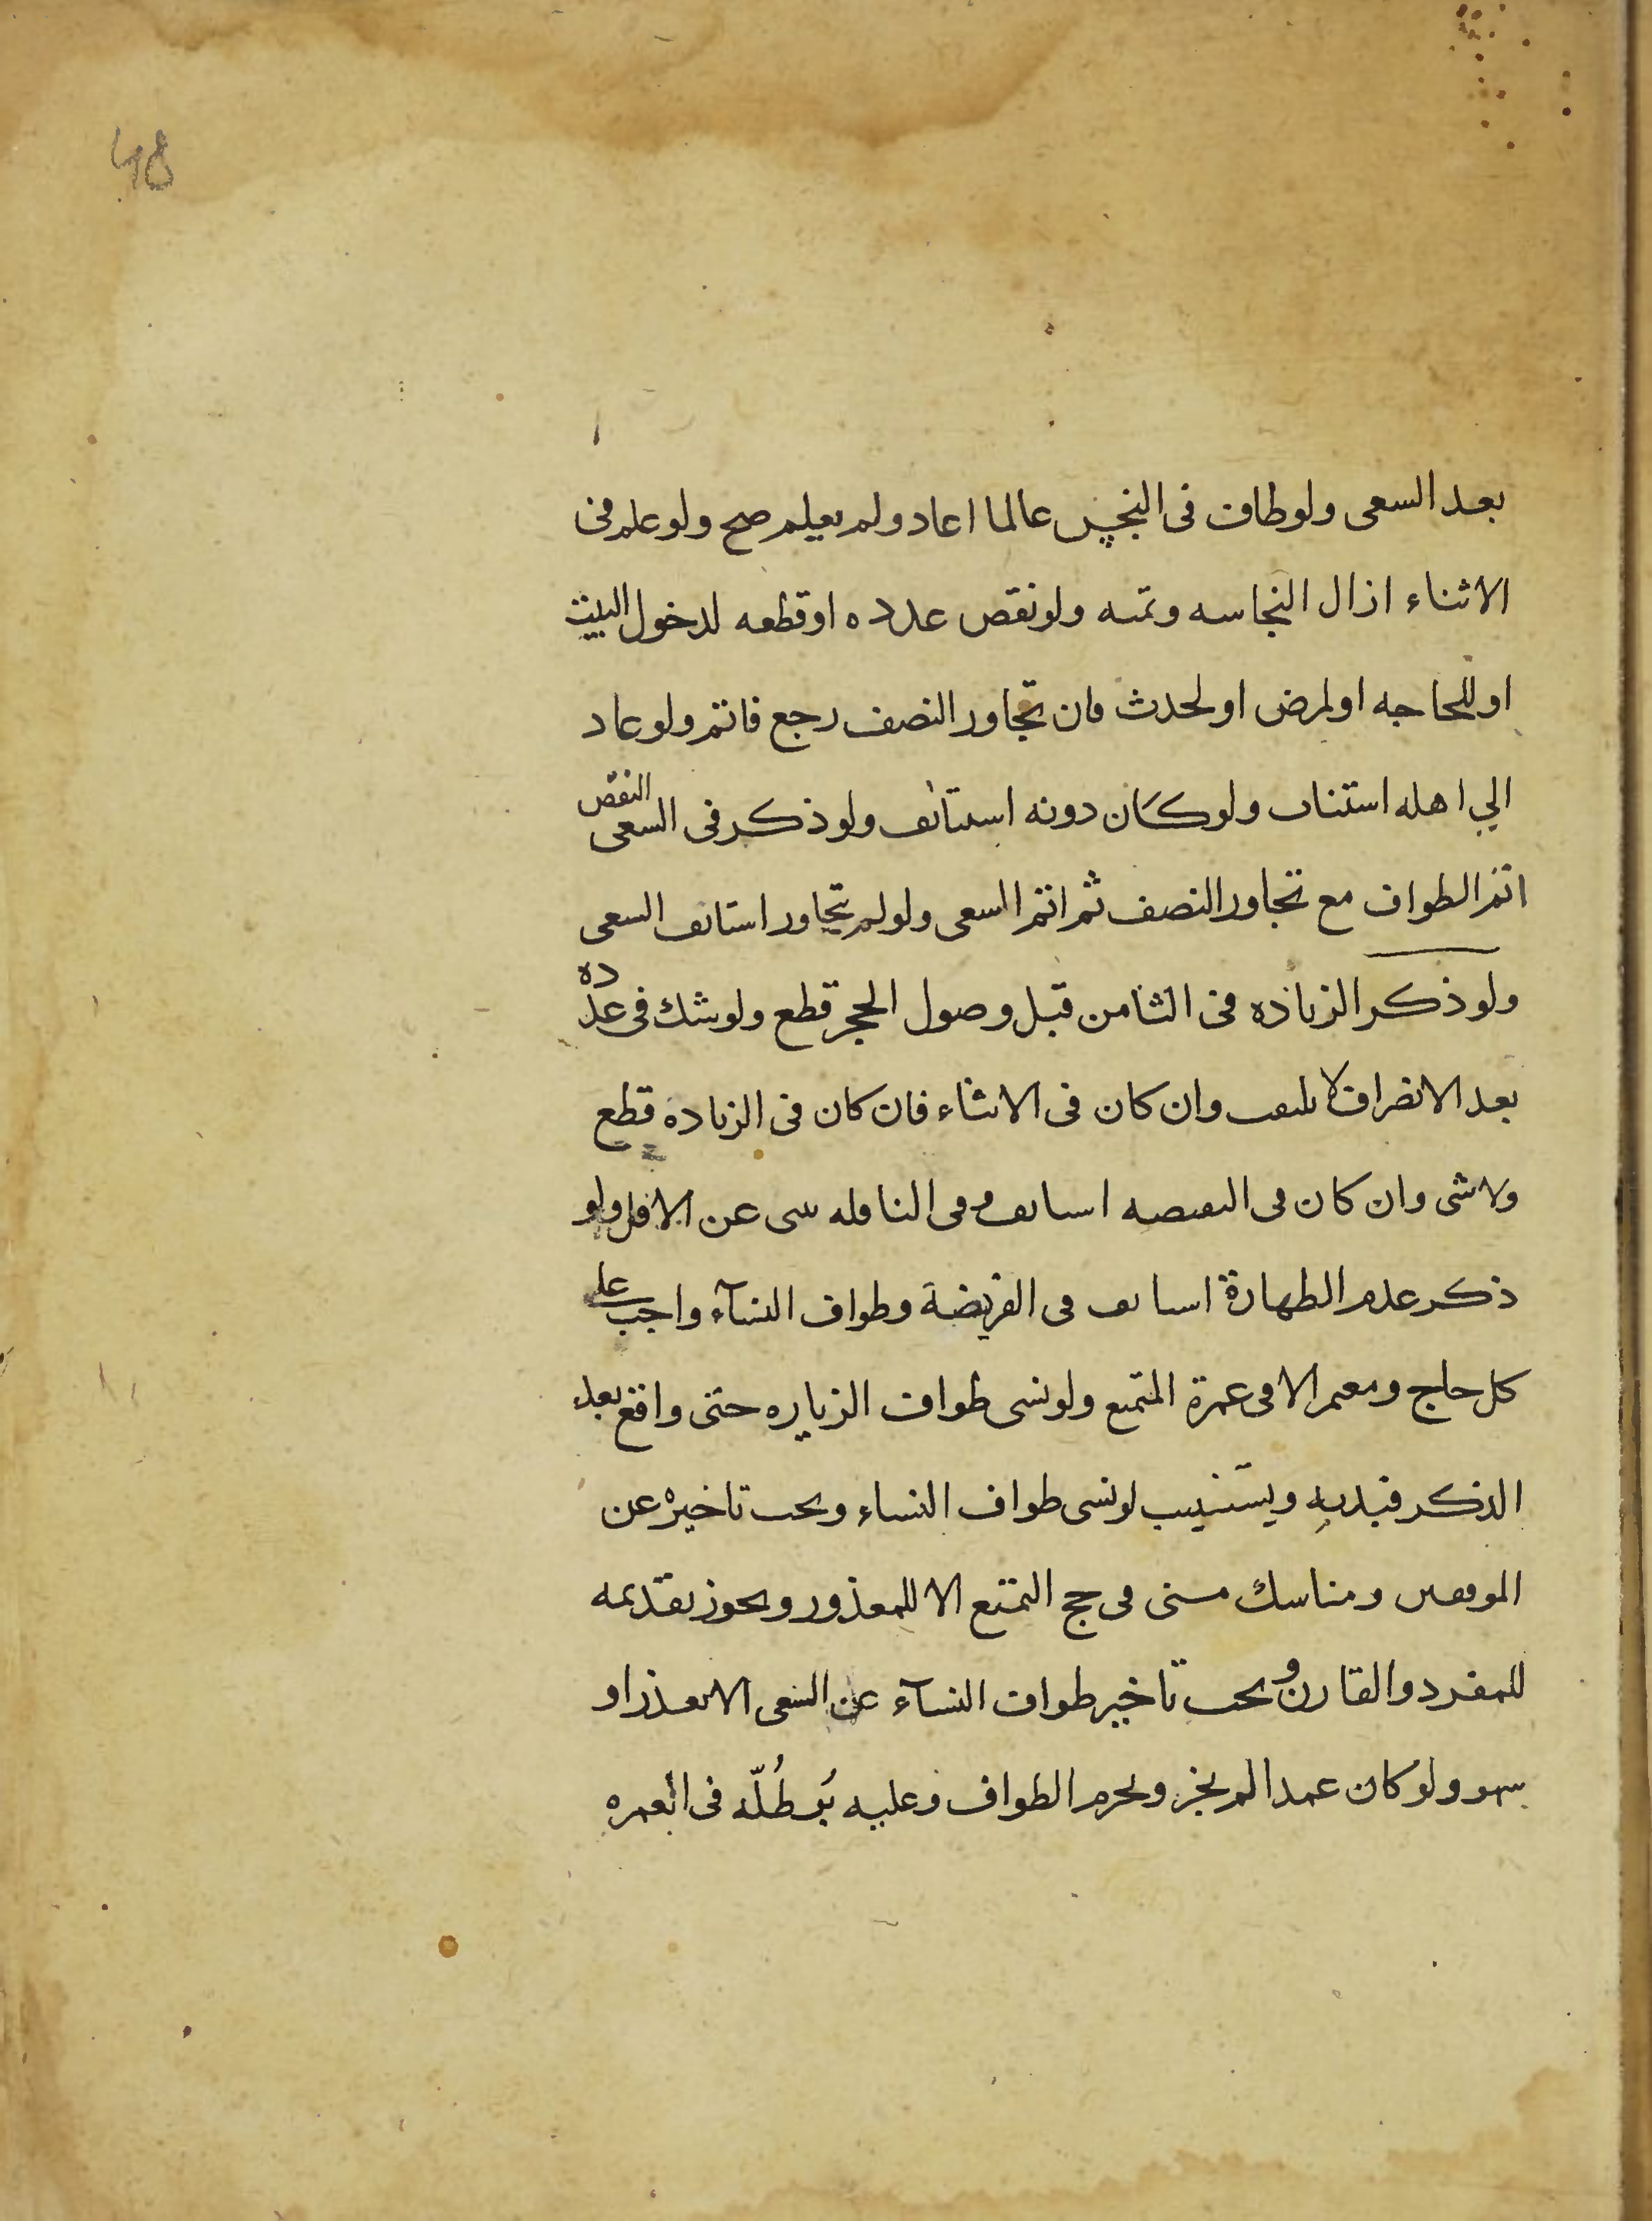 48
بعد السعى ولو طاف فى النجس عالما اعاد ولم يعلم صح ولو علم فى
الاثناء ازال النجاسه وتمه ولو نقص عدده او قطعه لدخول البيت
او للحاجه او لمرض او لحدث فان تجاوز النصف رجع فاتم ولو عاد
الي اهله استناب ولو كان دونه استانف ولو ذكر فى السعى النقص
اتم الطواف مع تجاوز النصف ثم اتم السعى ولو لم يتجاوز استانف السعى
ولو ذكر الزياده فى الثامن قبل وصول الحجر قطع ولو شك فى عدده
بعد الانصراف لا يلتفت وان كان فى الاثناء فان كان فى الزياده قطع
ولا شى وان كان فى النقيصه استانف وفى النافله يبنى عن الاقل ولو
ذكر عدم الطهارة استانف فى الفريضة وطواف النسآء واجب على
كل حاج ومعتمر الا فى عمرة المتمتع ولو نسى طواف الزياره حتى واقع بعد
الذكر فبدنه ويستنيب لو نسى طواف النساء ويجب تاخيره عن
الموقفين ومناسك منى فى حج التمتع الا للمعذور ويجوز تقديمه
للمفرد والقارن ويجب تاخير طواف النسآء عن السعى الا لعذر او
سهو ولو كان عمدا لم يجز ويحرم الطواف وعليه بُرطُلّه فى العمره